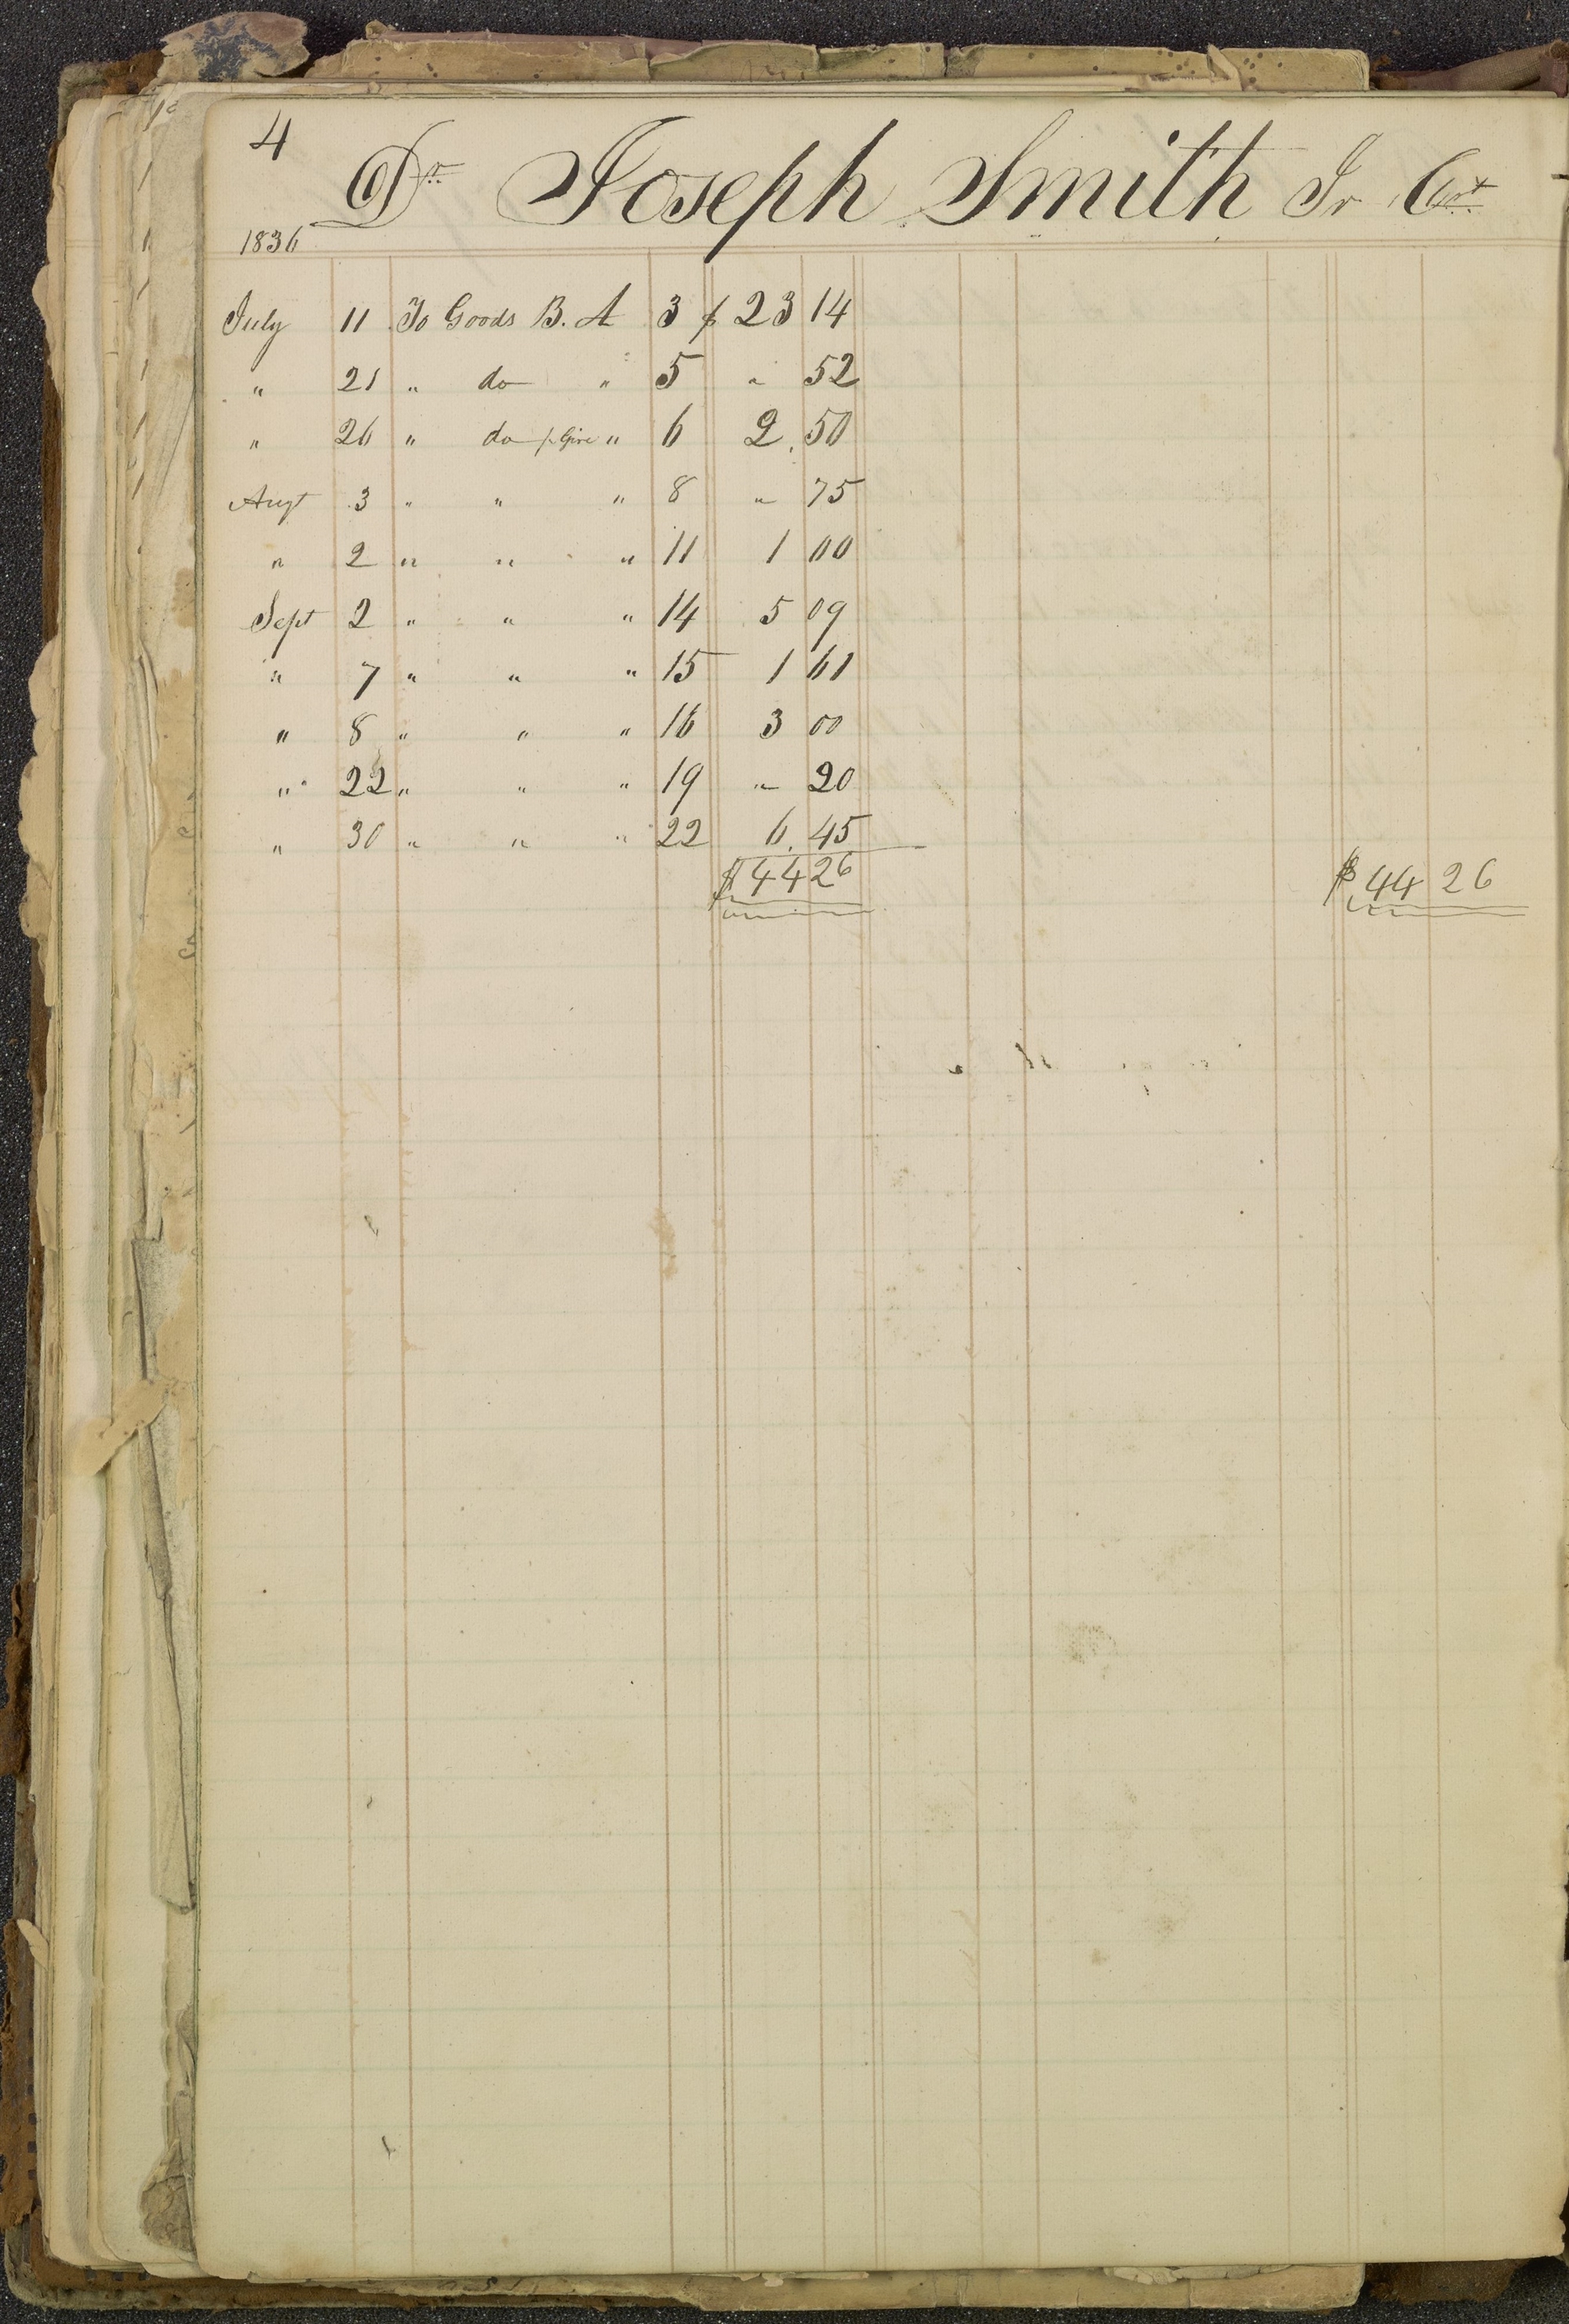 4
Dr Joseph Smith Jr Cr
1836
July 11 To Goods B. A 3 $ 23 14
" 21 " do " 5 " 52
" 26 " do " 6 2.50
Augt 3 " " " 8 " 75
" 2 " " " 11 1 00
Sept 2 " " " 14 5 09
" 7 " " " 15 1 61
" 8 " " " 16 3 00
" 22 " " " 19 " 20
" 30 " " " 22 6.45
$44 26 $44 26